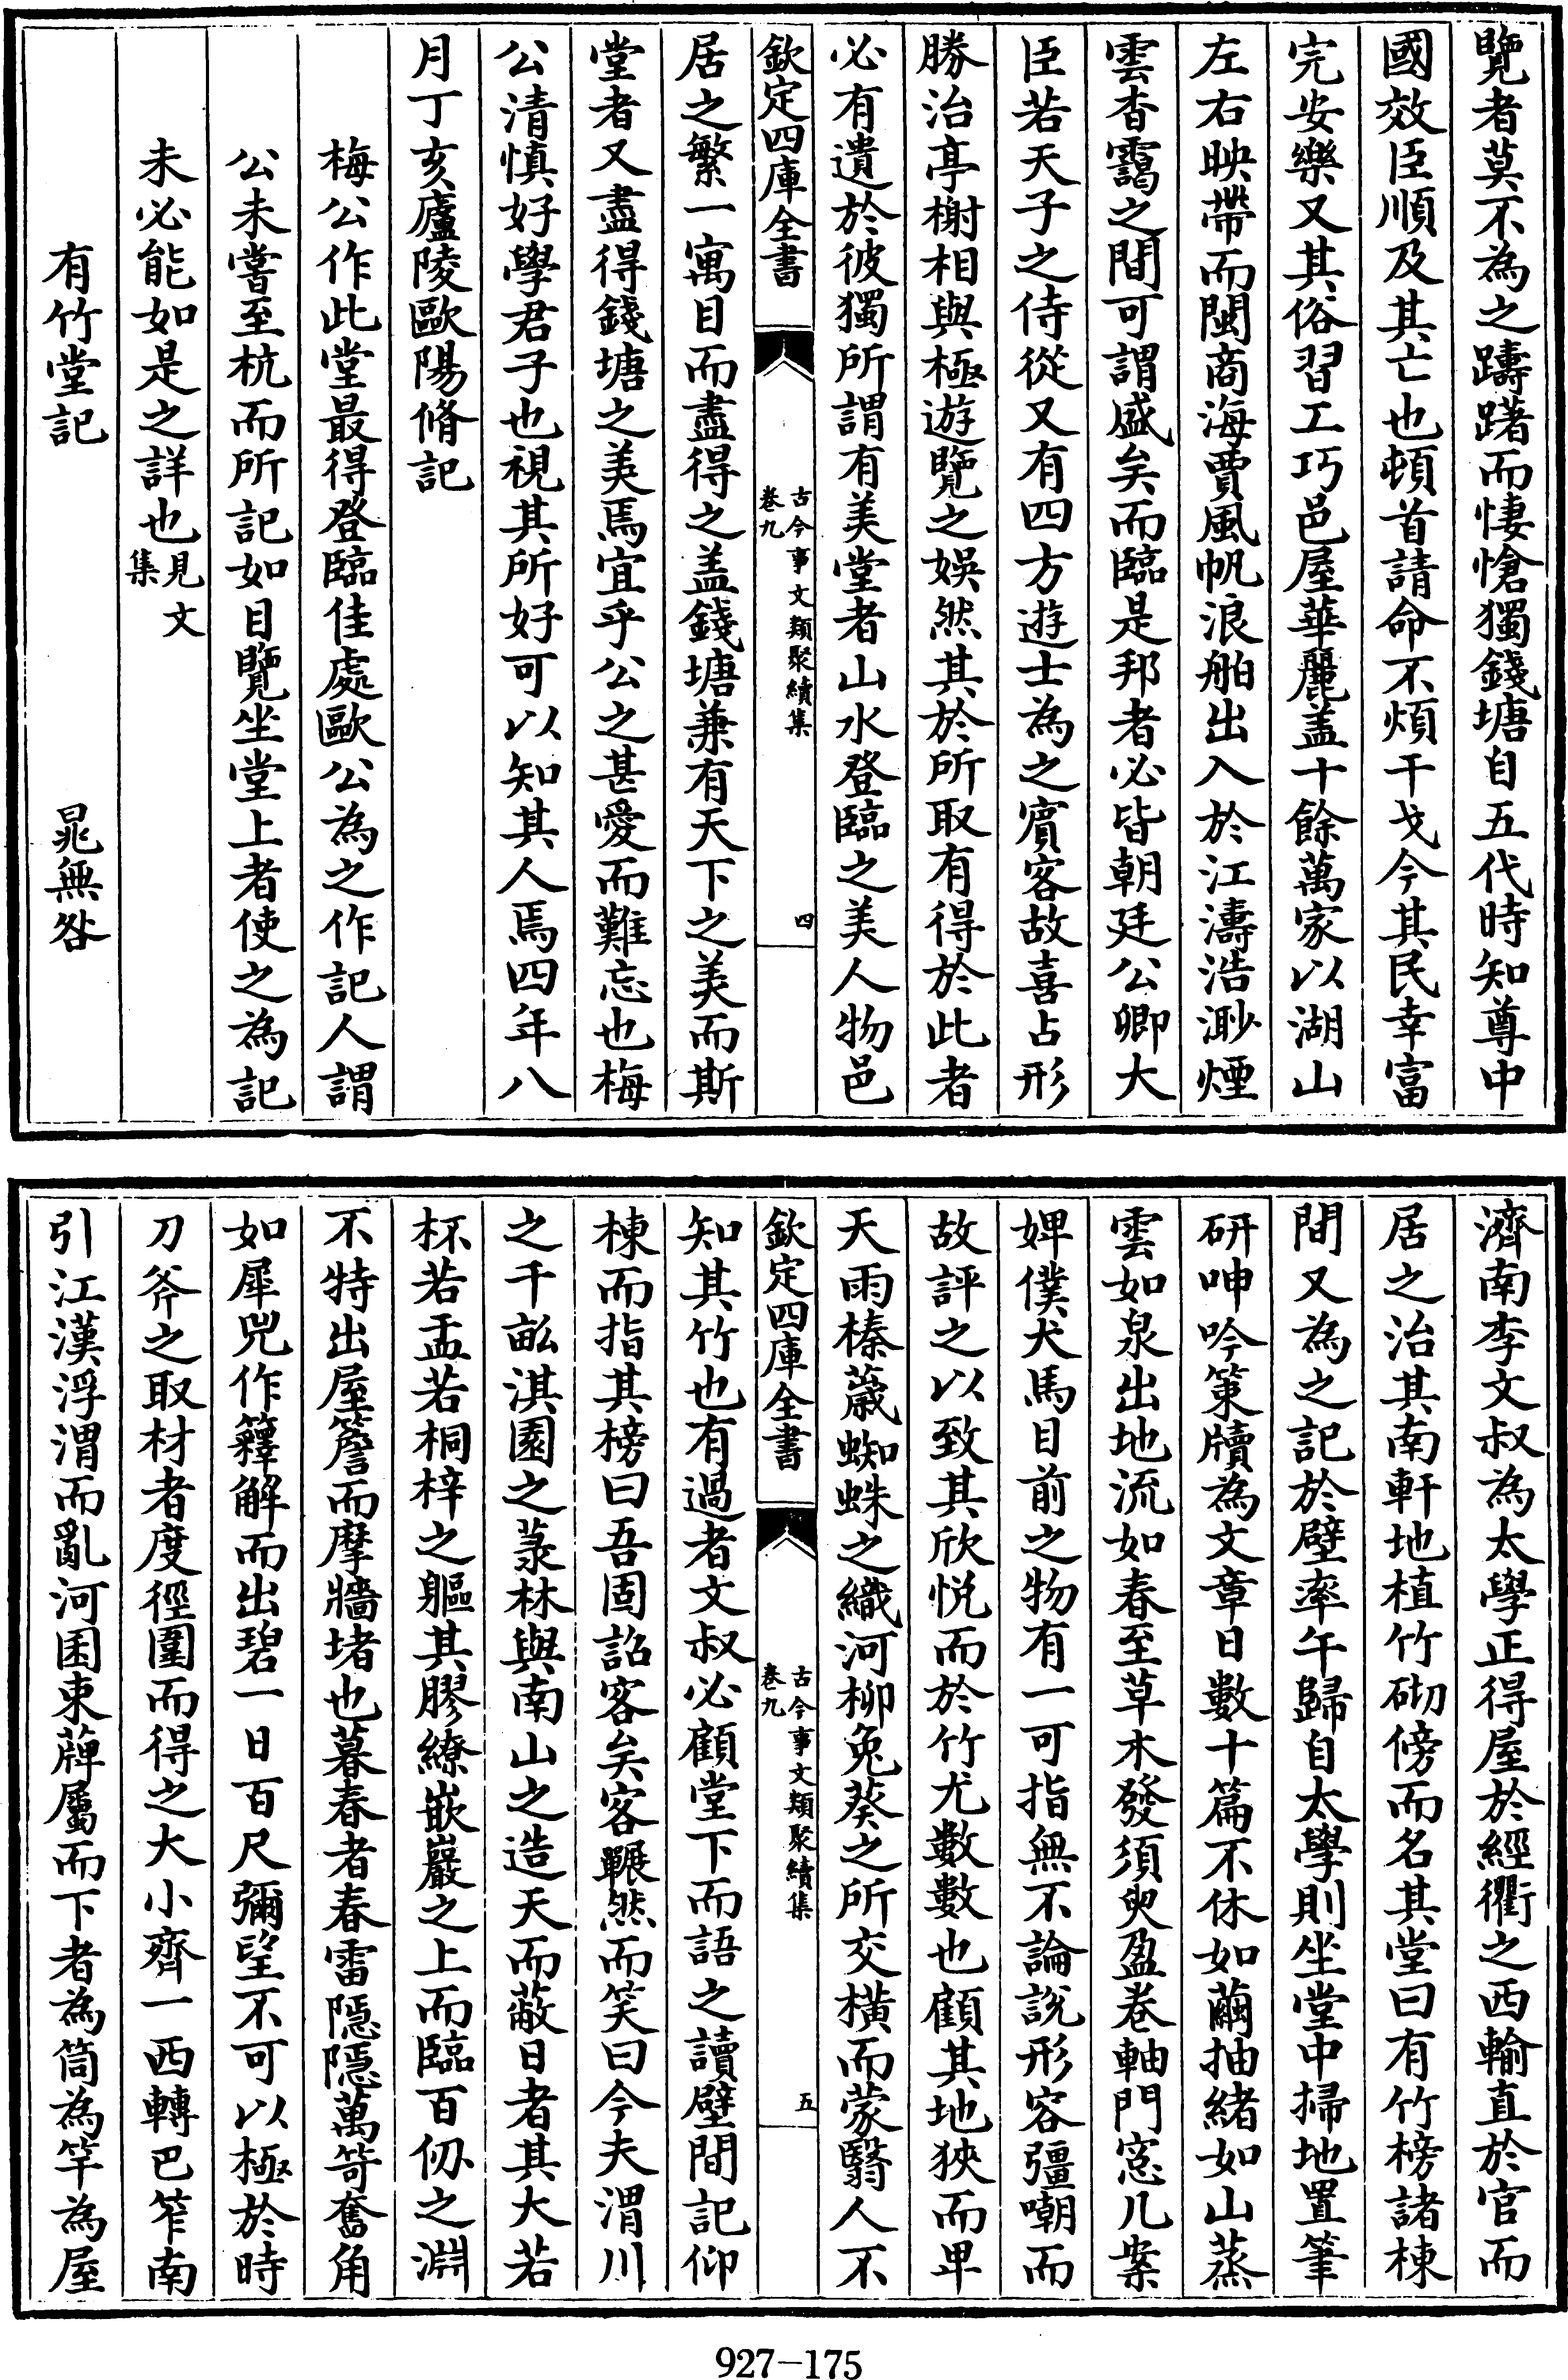 覽者莫不為之躊躇而悽愴獨錢塘自五代時知尊中
國效臣順及其亡也頓首請命不煩干戈今其民幸富
完安樂又其俗習工巧邑屋華麗盖十餘萬家以湖山
左右映帶而閩商海賈風帆浪舶出入於江濤浩渺煙
雲杳靄之間可謂盛矣而臨是邦者必皆朝廷公卿大
臣若天子之侍從又有四方遊士為之賓客故喜占形
勝治亭榭相與極遊覽之娛然其於所取有得於此者
必有遺於彼獨所謂有美堂者山水登臨之美人物邑
欽定四庫全書
古今事文類聚續集
卷九
四
居之繁一寓目而盡得之盖錢塘兼有天下之美而斯
堂者又盡得錢塘之美焉宜乎公之甚愛而難忘也梅
公清慎好學君子也視其所好可以知其人焉四年八
月丁亥廬陵歐陽脩記
梅公作此堂最得登臨佳處歐公為之作記人謂
公未嘗至杭而所記如目覽坐堂上者使之為記
未必能如是之詳也見文
集
有竹堂記 晁無咎
濟南李文叔為太學正得屋於經衢之西輸直於官而
居之治其南軒地植竹砌傍而名其堂曰有竹榜諸棟
間又為之記於壁率午歸自太學則坐堂中掃地置筆
研呻吟策牘為文章日數十篇不休如繭抽緒如山蒸
雲如泉出地流如春至草木發須臾盈卷軸門窓几案
婢僕犬馬目前之物有一可指無不論說形容彊嘲而
故評之以致其欣悅而於竹尤數數也顧其地狹而卑
天雨榛薉蜘蛛之織河柳兔葵之所交橫而蒙翳人不
欽定四庫全書
古今事文類聚續集
卷九
五
知其竹也有過者文叔必顧堂下而語之讀壁間記仰
棟而指其榜曰吾固詔客矣客囅然而笑曰今夫渭川
之千畝淇園之菉林與南山之造天而蔽日者其大若
杯若盂若桐梓之軀其膠繚嵌巖之上而臨百仞之淵
不特出屋簷而摩牆堵也暮春者春雷隱隱萬笴奮角
如犀兕作籜解而出碧一日百尺彌望不可以極於時
刀斧之取材者度徑圍而得之大小齊一西轉巴笮南
引江漢浮渭而亂河困束蔴屬而下者為筒為竿為屋
927-175